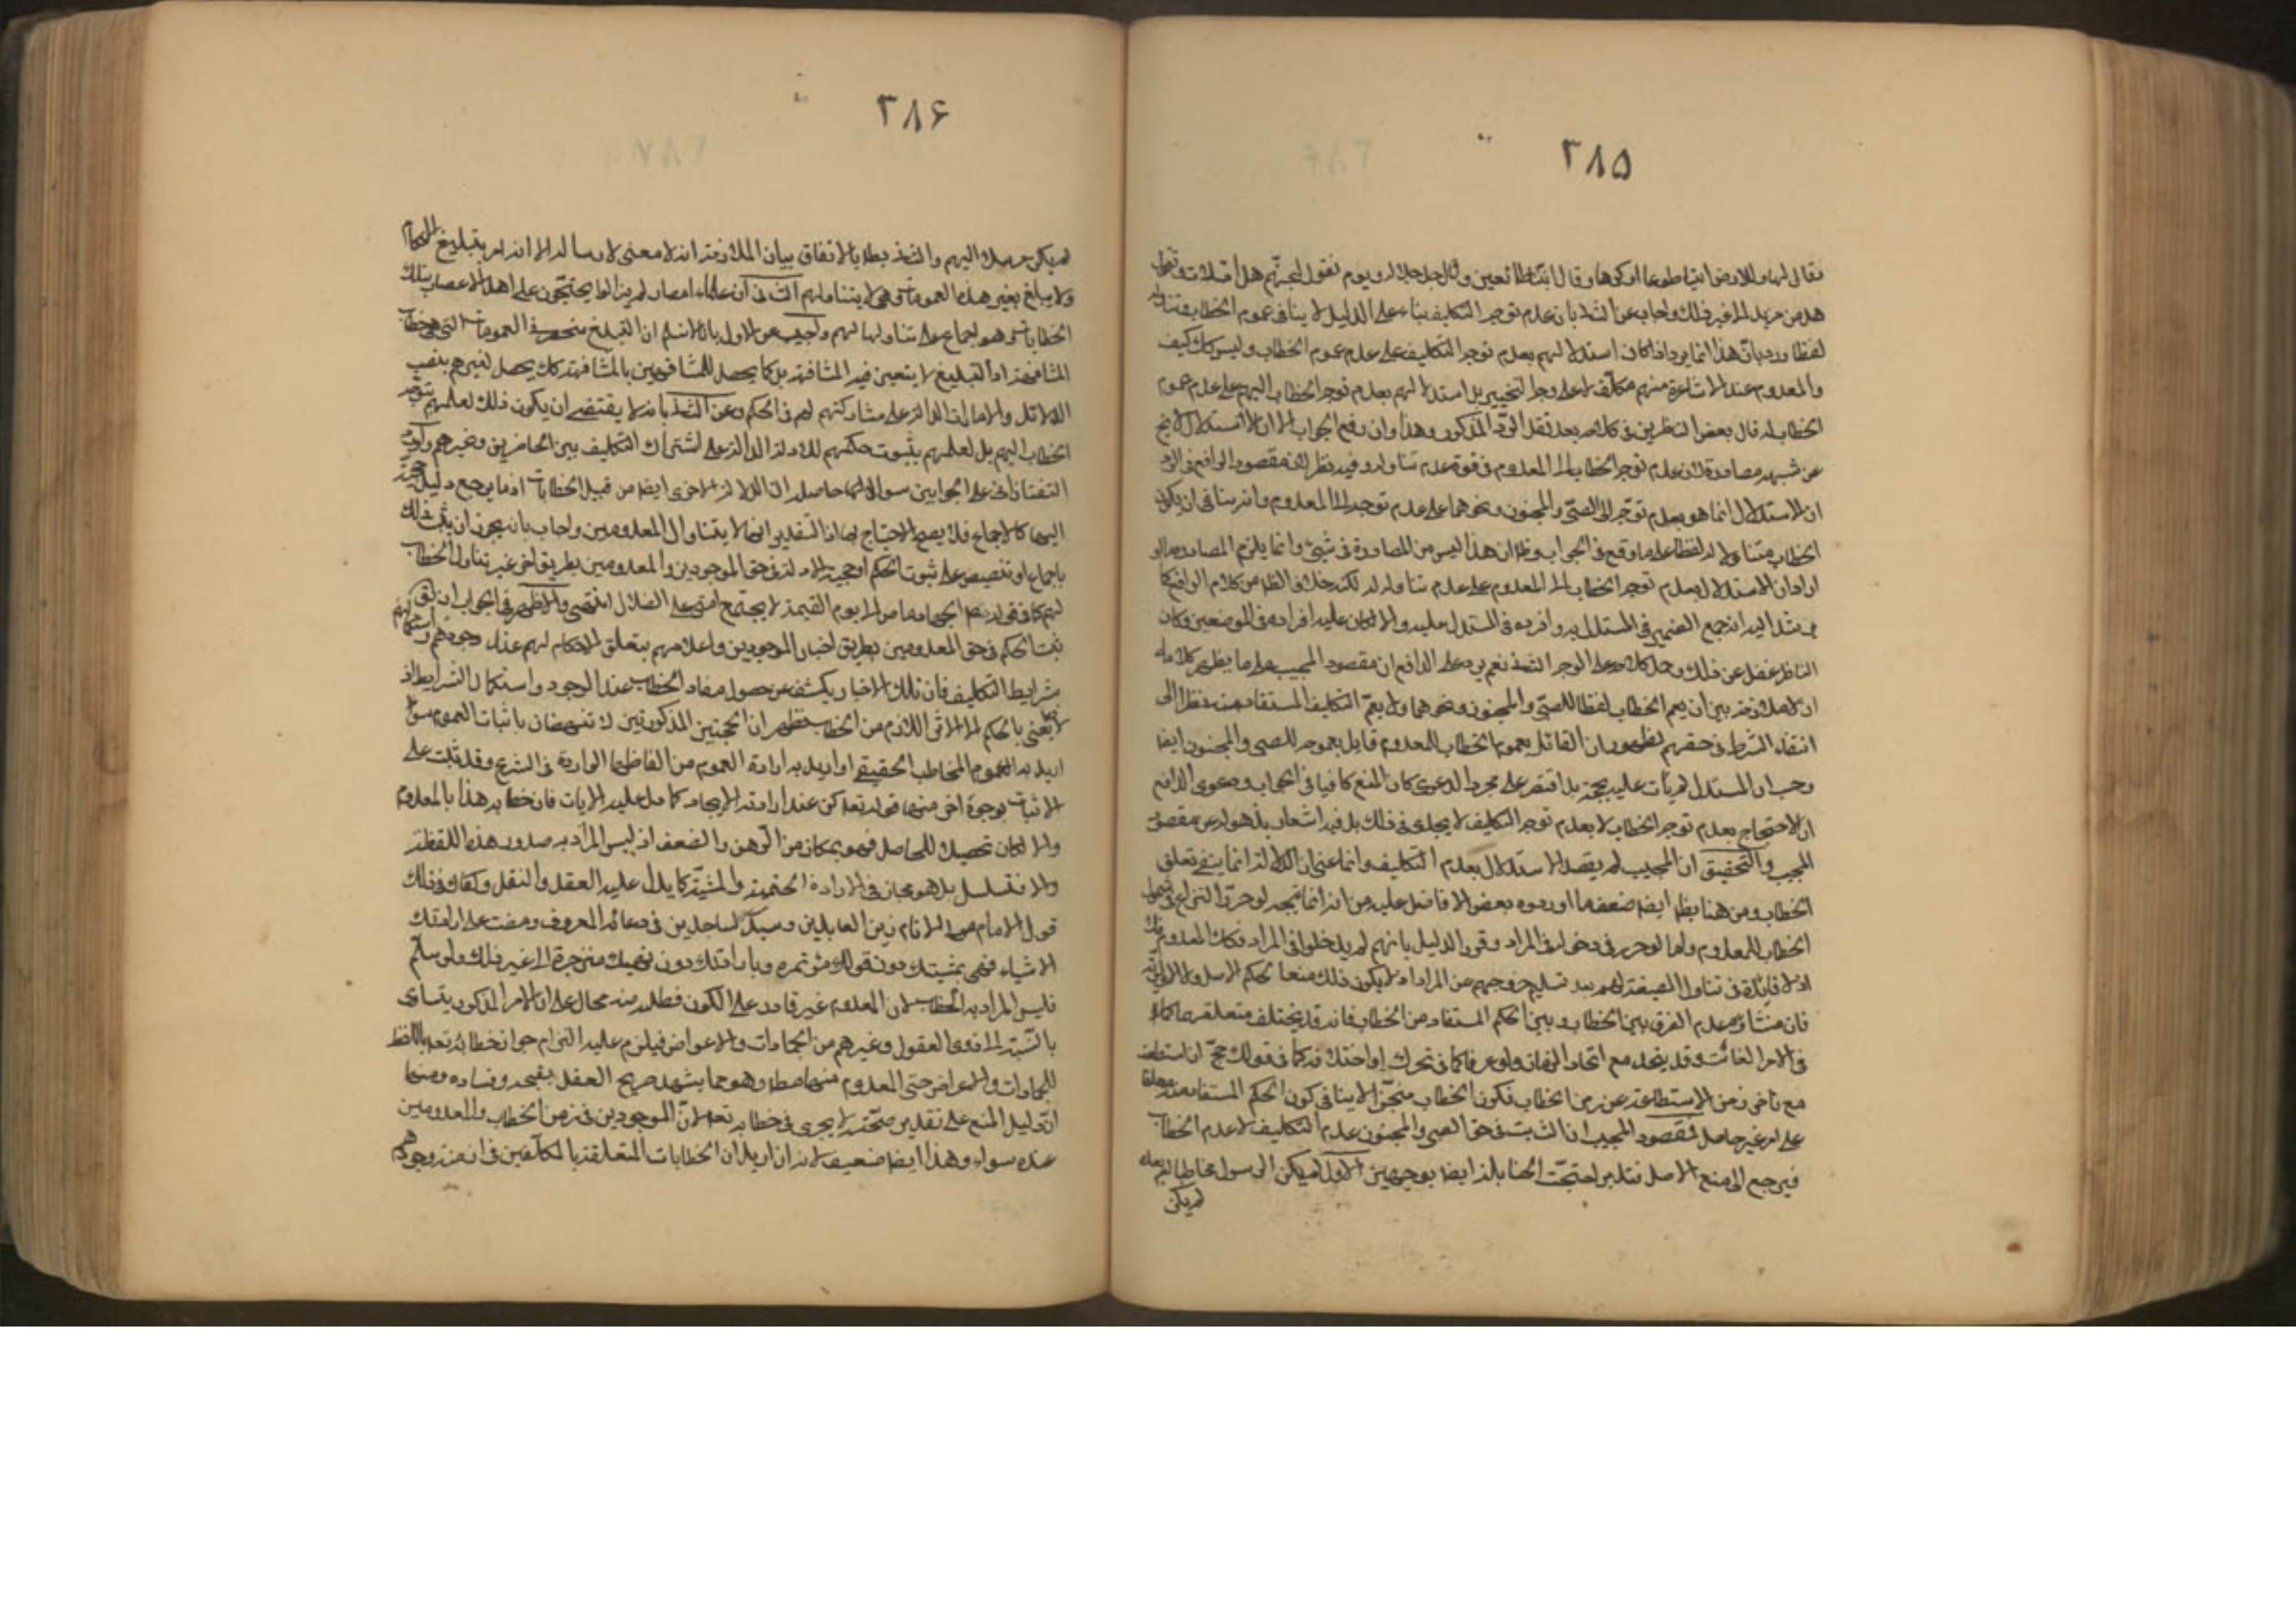 ۳۸۵
فقال لها وللارض ائتيا طوعا او كرها وقالتا اتينا طائعين وقال جل جلاله ويوم نقول لجهنم هل امتلات وتقول
هل من مزيد الى غير ذلك واجاب عن الثانى بان عدم توجه التكليف بناء على الدليل لا ينافى عموم الخطاب وتناوله
لفظا ورد بان هذا انما يرد اذا كان استدلالهم بعدم توجه التكليف على عدم عموم الخطاب وليس كك كيف
والمعدوم عند الاشاعرة منهم مكلف لا على وجه التخيير بل استدلالهم بعدم توجه الخطاب اليهم على عدم عموم
الخطاب له قال بعض الناظرين فى كلامه بعد نقل الرد المذكور وهذا وان دفع الجواب الا ان الاستدلال لا يخ
عن شبهه مصادرة لان عدم توجه الخطاب الى المعدوم فى قوة عدم تناوله وفيه نظر لان مقصود الدافع فى الرد
ان الاستدلال انما هو بعدم توجه الى الصبى والمجنون ونحوهما على عدم توجهه الى المعدوم وانه ينافى ان يكون
الخطاب متناولا له لفظا على ما وقع فى الجواب وظ ان هذا ليس من المصادرة فى شيئ وانما يلزم المصادرة لو
اراد ان الاستدلال بعدم توجه الخطاب الى المعدوم على عدم تناوله له لكنه خلاف الظ من كلام الدافع كما
يرشد اليه انه جمع الضمير فى المستدل به وافرده فى المستدل عليه والا لكان عليه افراده فى الموضعين وكان
الناظر غفل عن ذلك وحمل كلامه على الوجه الثانى نعم يرد على الدافع ان مقصود المجيب على ما يظهر من كلامه
ان لا ملازمة بين ان يعم الخطاب لفظا للصبى والمجنون ونحوهما ولا يعم التكليف المستفاد منه نظرا الى
انتفاء الشرط فى حقهم لظهور ان القائل بعموم الخطاب للمعدوم قايل بعمومه للصبى والمجنون ايضا
وحيث ان المستدل لم يأت عليه بحجة بل اقتصر على مجرد الدعوى كان المنع كافيا فى الجواب ودعوى الدافع
ان الاحتجاج بعدم توجه الخطاب لا بعدم توجه التكليف لا يجدى فى ذلك بل فيه اشعار بذهوله عن مقصود
المجيب والتحقيق ان المجيب لم يقصد الاستدلال بعدم التكليف وانما عنى ان الدلالة انما ينفى تعلق
الخطاب ومن هنا يظهر ايضا ضعف ما اورده بعض الافاضل عليه من انه انما يتجه لو حرر النزاع فى شمول
الخطاب للمعدوم واما لو حرر فى دخوله فى المراد وقرر الدليل بانهم لم يدخلوا فى المراد فكذا المعدوم
اذ لا فائدة فى تناول الصيغة لهم بعد تسليم خروجهم عن المراد اذ لا يكون ذلك منعا لحكم الاصل ولا
فان منشاؤه عدم الفرق بين الخطاب وبين الحكم المستفاد من الخطاب فانه قد يختلف متعلقهما كما
فى الامر الغائب وقد يتحد مع اتحاد الزمان ولو عرفا كما فى تحرك او اختلافه كما فى قولك حج ان استطعت
مع تأخر زمن الاستطاعة عن زمن الخطاب فكون الخطاب منجزا لا ينافى كون الحكم المستفاد منه معلقا
على امر غير حاصل فمقصود المجيب ان الثابت فى حق الصبى والمجنون عدم التكليف لا عدم الخطاب
فيرجع الى منع الاصل فتدبر احتجت الحنابلة ايضا بوجهين الاول لو لم يكن الرسول مخاطبا لهم
لم يكن
۳۸۶
لم يكن مرسلا اليهم والثانى بطلا بالاتفاق بيان الملازمة انه لا معنى لارساله الا ان امر بتبليغ الاحكام
ولا مبلغ بغير هذه العمومات وهى لا يتناولهم الثانى ان علماء امصار لم يزالوا يحتجون على اهل الاعصار بتلك
الخطابات وهو اجماع على تناولها لهم واجيب عن الاول بانا لا نسلم ان التبليغ منحصر فى العمومات التى هى خطاب
المشافهة اذ التبليغ لا يتعين فيه المشافهة بل كما يحصل للمشافهين بالمشافهة كك يحصل لغيرهم بنصب
الدلائل والامارات الدالة على مشاركتهم لهم فى الحكم وعن الثانى بانه لا يقتضى ان يكون ذلك لعلمهم بتوجه
الخطاب اليهم بل لعلمهم بثبوت حكمهم للادلة الدالة على اشتراك التكليف بين الحاضرين وغيرهم واورد
التفتازانى على الجوابين سوالا حاصله ان الادلة الاخرى ايضا من قبيل الخطابات او ما يرجع دليل حجيته
اليها كالاجماع فلا يصح الاحتجاج بها اذ التقدير انها لا يتناول المعدومين واجاب بانه يجوز ان يثبت ذلك
باجماع او تنصيص على ثبوت الحكم او حجية الادلة فى حق الموجودين والمعدومين بطريق اخر غير تناول الخطاب
لهم كما فى قوله ص الجهاد ماض الى يوم القيمة لا يجتمع امتى على الضلال انتهى والاظهر فى الجواب ان يق
ثبت الحكم فى حق المعدومين بطريق اخبار الموجودين واعلامهم بتعلق الاحكام لهم عند وجودهم واستكمالهم
شرايط التكليف فان تلك الاخبار يكشف عن حصول مفاد الخطاب عند الوجود واستكمال الشرايط اذ
لا نعنى بالحكم الا الاثر اللازم من الخطاب فظهر ان الحجتين المذكورتين لا تنهضان باثبات العموم سواء
اريد به العموم المخاطب الحقيقى او اريد به ارادة العموم من الفاظها الواردة فى الشرع وقد ثبت على
الاثبات بوجوه اخر منها قوله تعالى كن عند ارادته الايجاد كما دل عليه الايات فان خطابه هذا بالمعدوم
والا لكان تحصيلا للحاصل فهو بمكان من الوهن والضعف اذ ليس المراد به صدور هذه اللفظة
والا فتسلسل بل هو مجاز فى الارادة الحتمية والمشية كما يدل عليه العقل والنقل وكفاك فى ذلك
قول الامام مولى الانام زين العابدين وسيد الساجدين فى دعائه المعروف ومضت على ارادتك
الاشياء فهى بمشيتك دون قولك مؤتمرة وبارادتك دون نهيك منزجرة الى غير ذلك ولو سلم
فليس المراد به الخطاب لان المعدوم غير قادر على الكون فطلبه منه محال على ان الامر المذكور يتساوى
بالنسبة الى ذوى العقول وغيرهم من الجمادات والاعراض فيلزم عليه التزام جواز خطابه تعالى بالالفاظ
للجمادات والاعراض حتى المعدوم منهما مطلقا وهو مما يشهد صريح العقل بقبحه وفساده ومنها
ان دليل المنع على تقدير صحته لا يجرى فى خطابه تعالى لان الموجودين فى زمن الخطاب والمعدومين
عنده سواء وهذا ايضا ضعيف لانه ان اريد ان الخطابات المتعلقة بالمكلفين فى ازمنة وجودهم